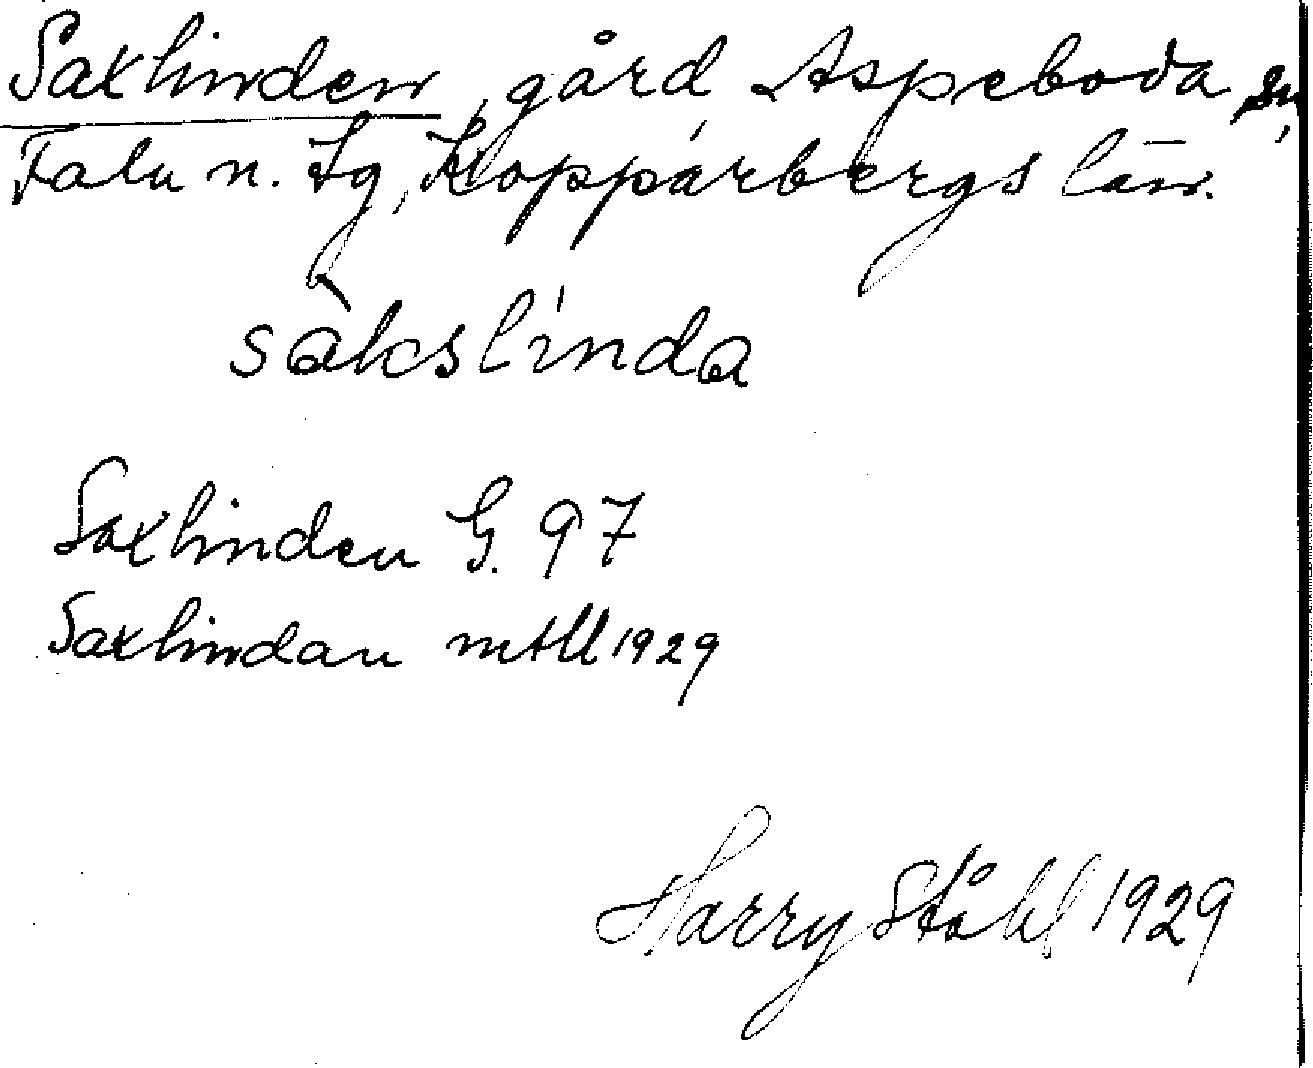 Saxlinden, gård Aspeboda sn,
Falu n. tg, Kopparbergs län.
sàkslinda
Saxlinden G. 97
Saxlindan mtll 1929
Harry Ståhl 1929